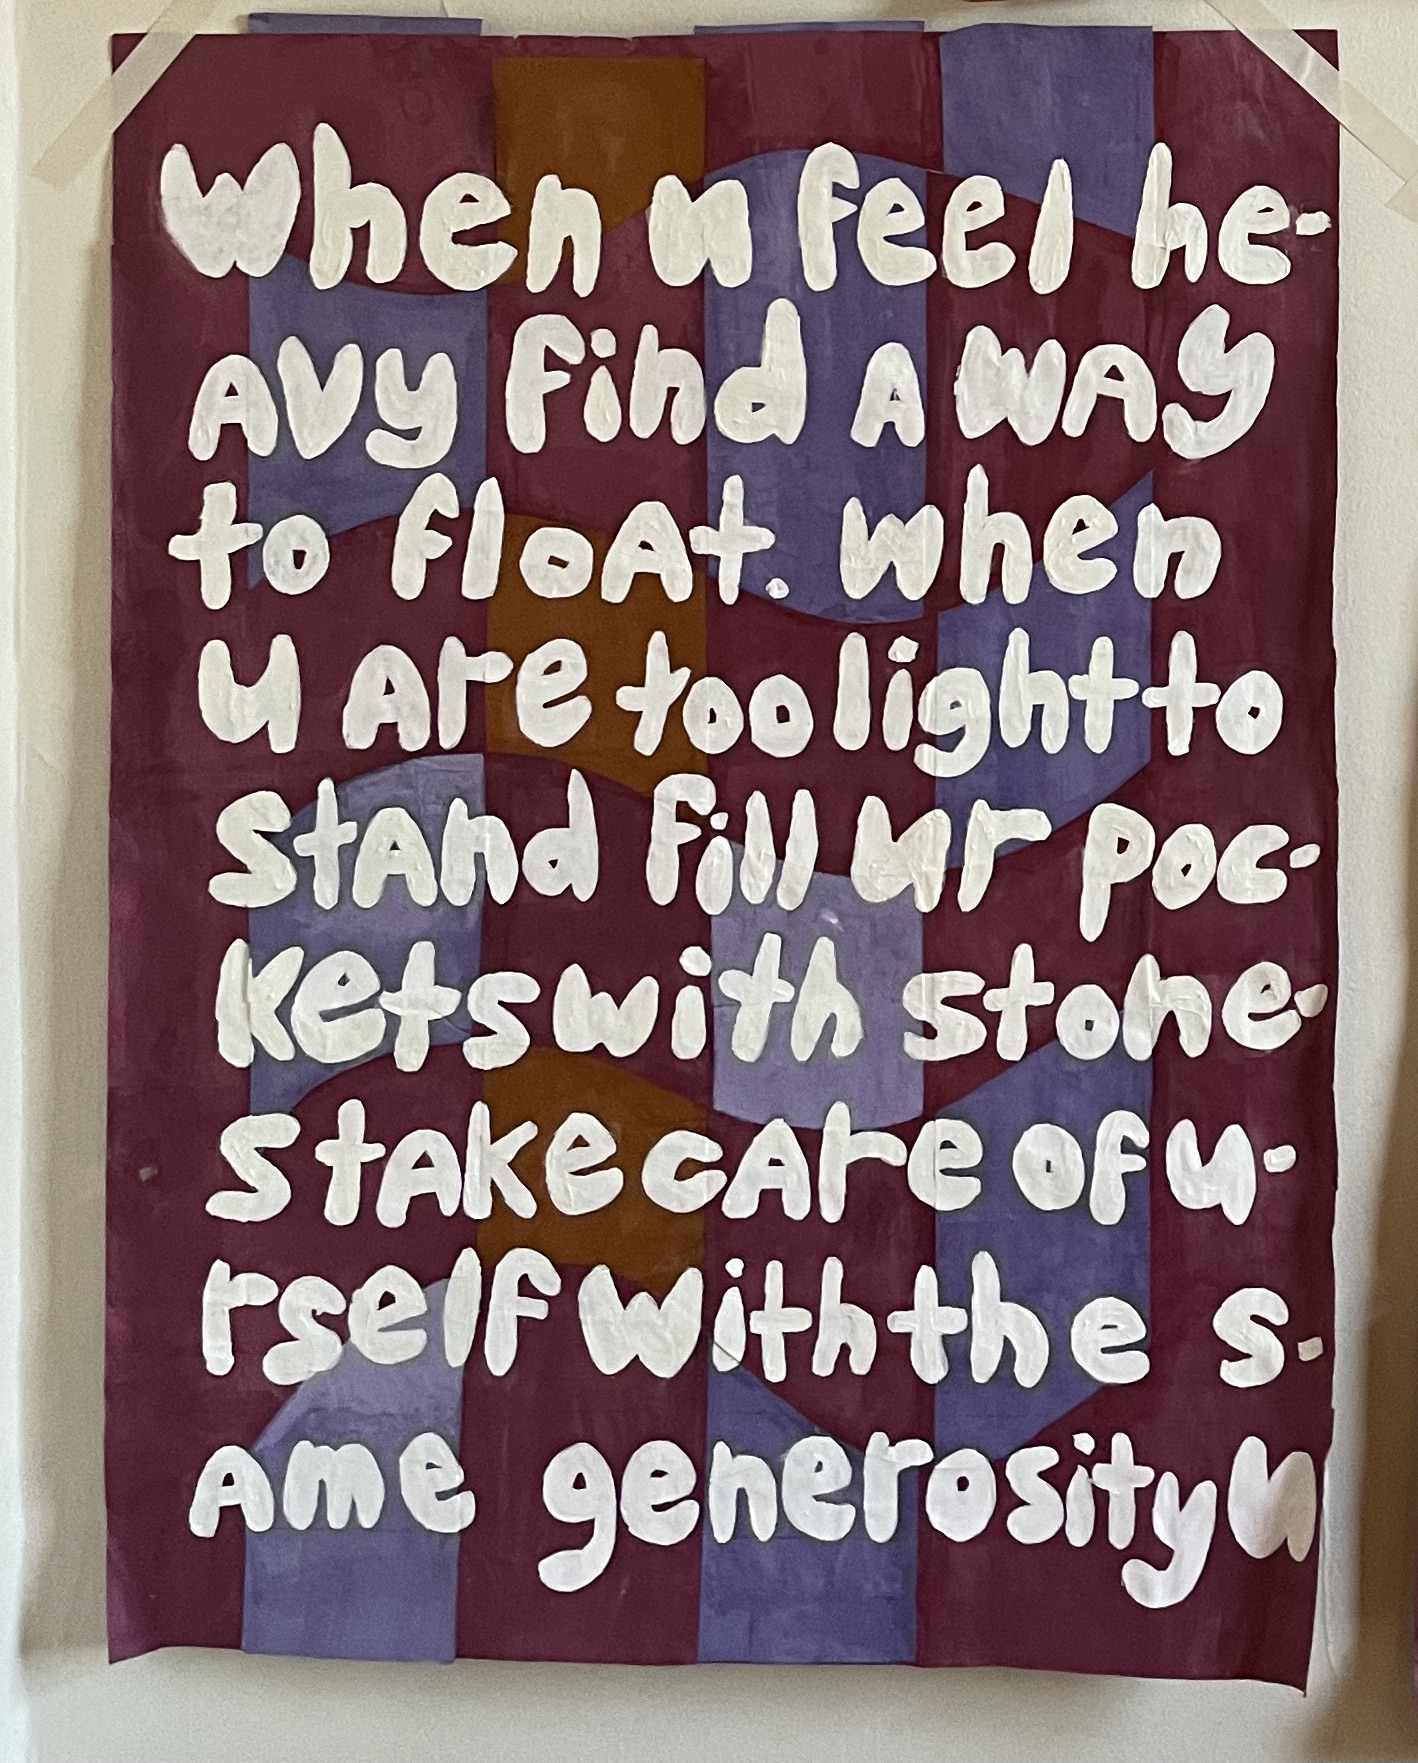 When u feel he-
Avy find A WAy
to floAt. When
u Are too light to
stAnd fill ur poc-
kets with stone-
s tAke cAre of u-
rself with the s-
Ame generosity u